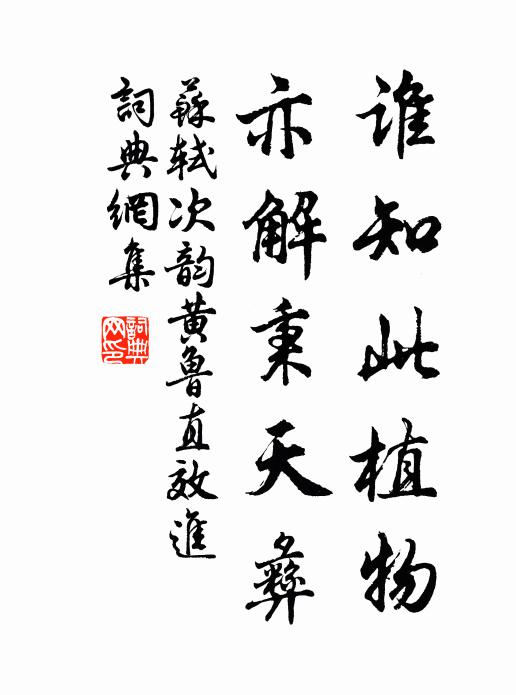 誰知此植物
亦解秉天彝
蘇軾次韵黃魯直效進
詞典網集
詞典
网印